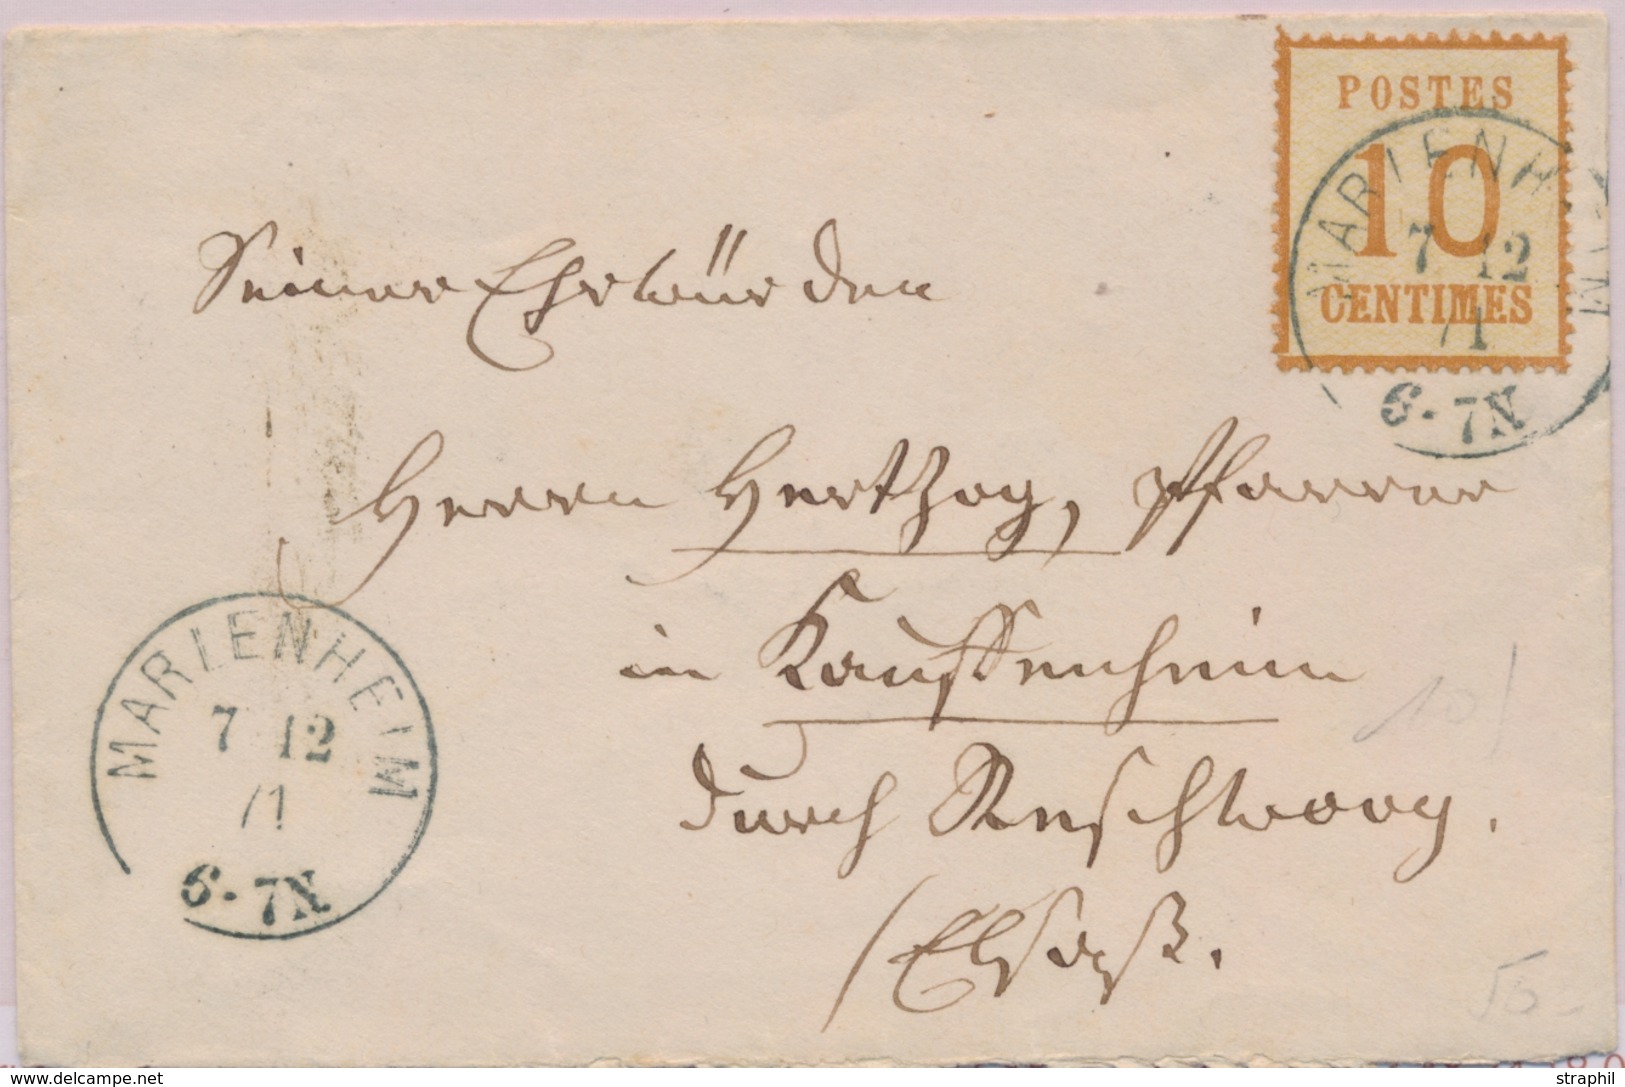 POSTES
10
CENTIMES
MARIENH
IM
7 12
71
6-7N
Seiner Ehrwürden
Herrn Hertzog, Pfarrer
in Kauffenheim
durch Röschwoog.
(Elsaß.
MARIENHEIM
7 12
71
6-7N
101
delcampe.net
straphil